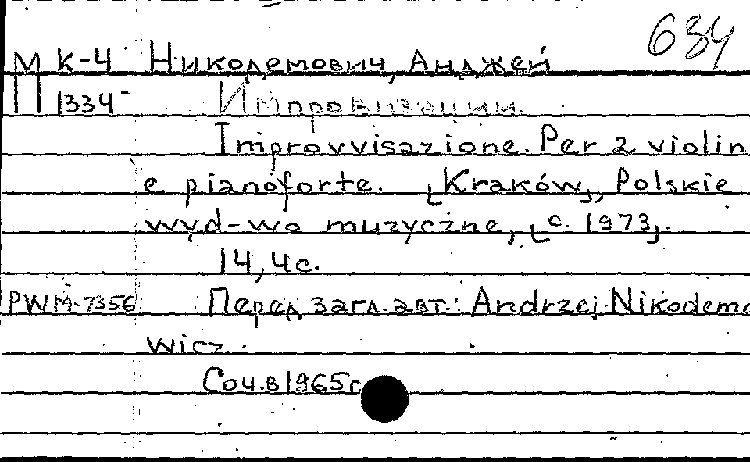 634
М К-4 Никодемович, Анджей
П 1334 Импровизации.
Improvvisazione. Per 2 violin
e pianoforte. [Kraków], Polskie
wyd-wo muzyczne, [c. 1973].
14, 4 с.
PWM-7356 Перед загл. авт.: Andrzej Nikodemo
wicz.
Соч. в 1965 г.